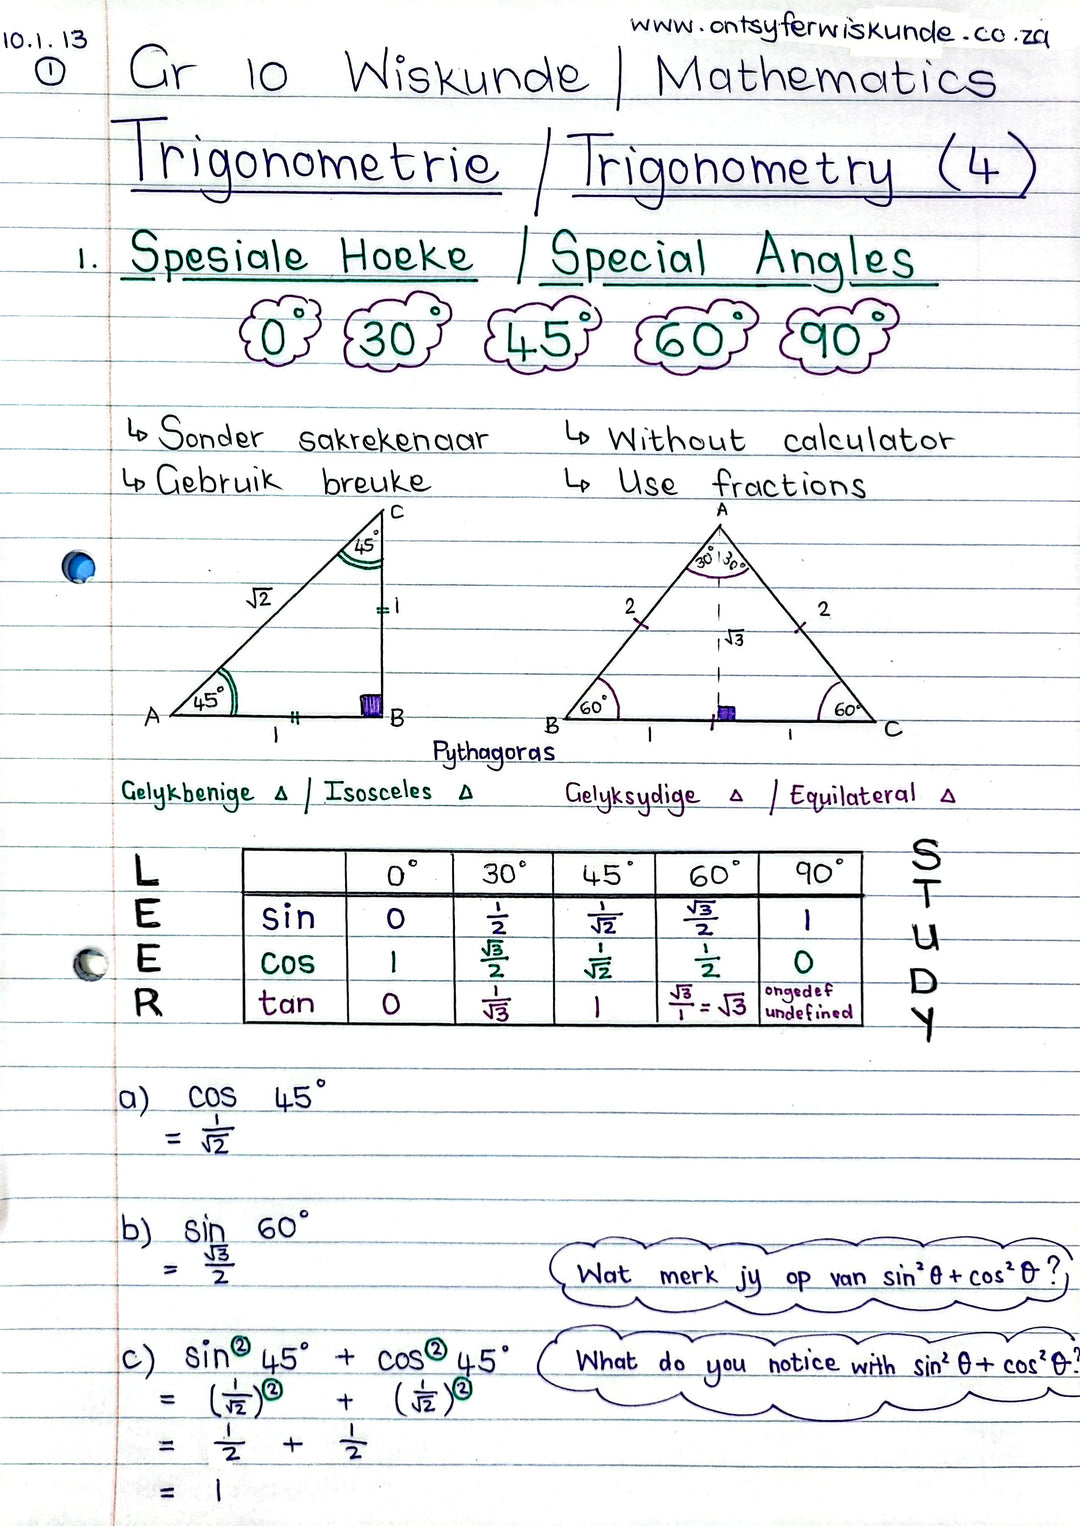 www.ontsyferwiskunde.co.za
10.1.13
① Gr 10 Wiskunde | Mathematics
Trigonometrie / Trigonometry (4)
1. Spesiale Hoeke / Special Angles
0° 30° 45° 60° 90°
↳ Sonder sakrekenaar ↳ Without calculator
↳ Gebruik breuke ↳ Use fractions
C A
45° 30° 30°
√2 1 2 2
√3
45° 60° 60°
A B B C
1 1 1
Pythagoras
Gelykbenige Δ / Isosceles Δ Gelyksydige Δ / Equilateral Δ
LEER
0° 30° 45° 60° 90°
sin 0 1/2 1/√2 √3/2 1
cos 1 √3/2 1/√2 1/2 0
tan 0 1/√3 1 √3/1 = √3 ongedef undefined
STUDY
a) cos 45°
= 1/√2
b) sin 60°
= √3/2
Wat merk jy op van sin²θ + cos²θ?
c) sin② 45° + cos② 45°
What do you notice with sin²θ + cos²θ?
= (1/√2)② + (1/√2)②
= 1/2 + 1/2
= 1